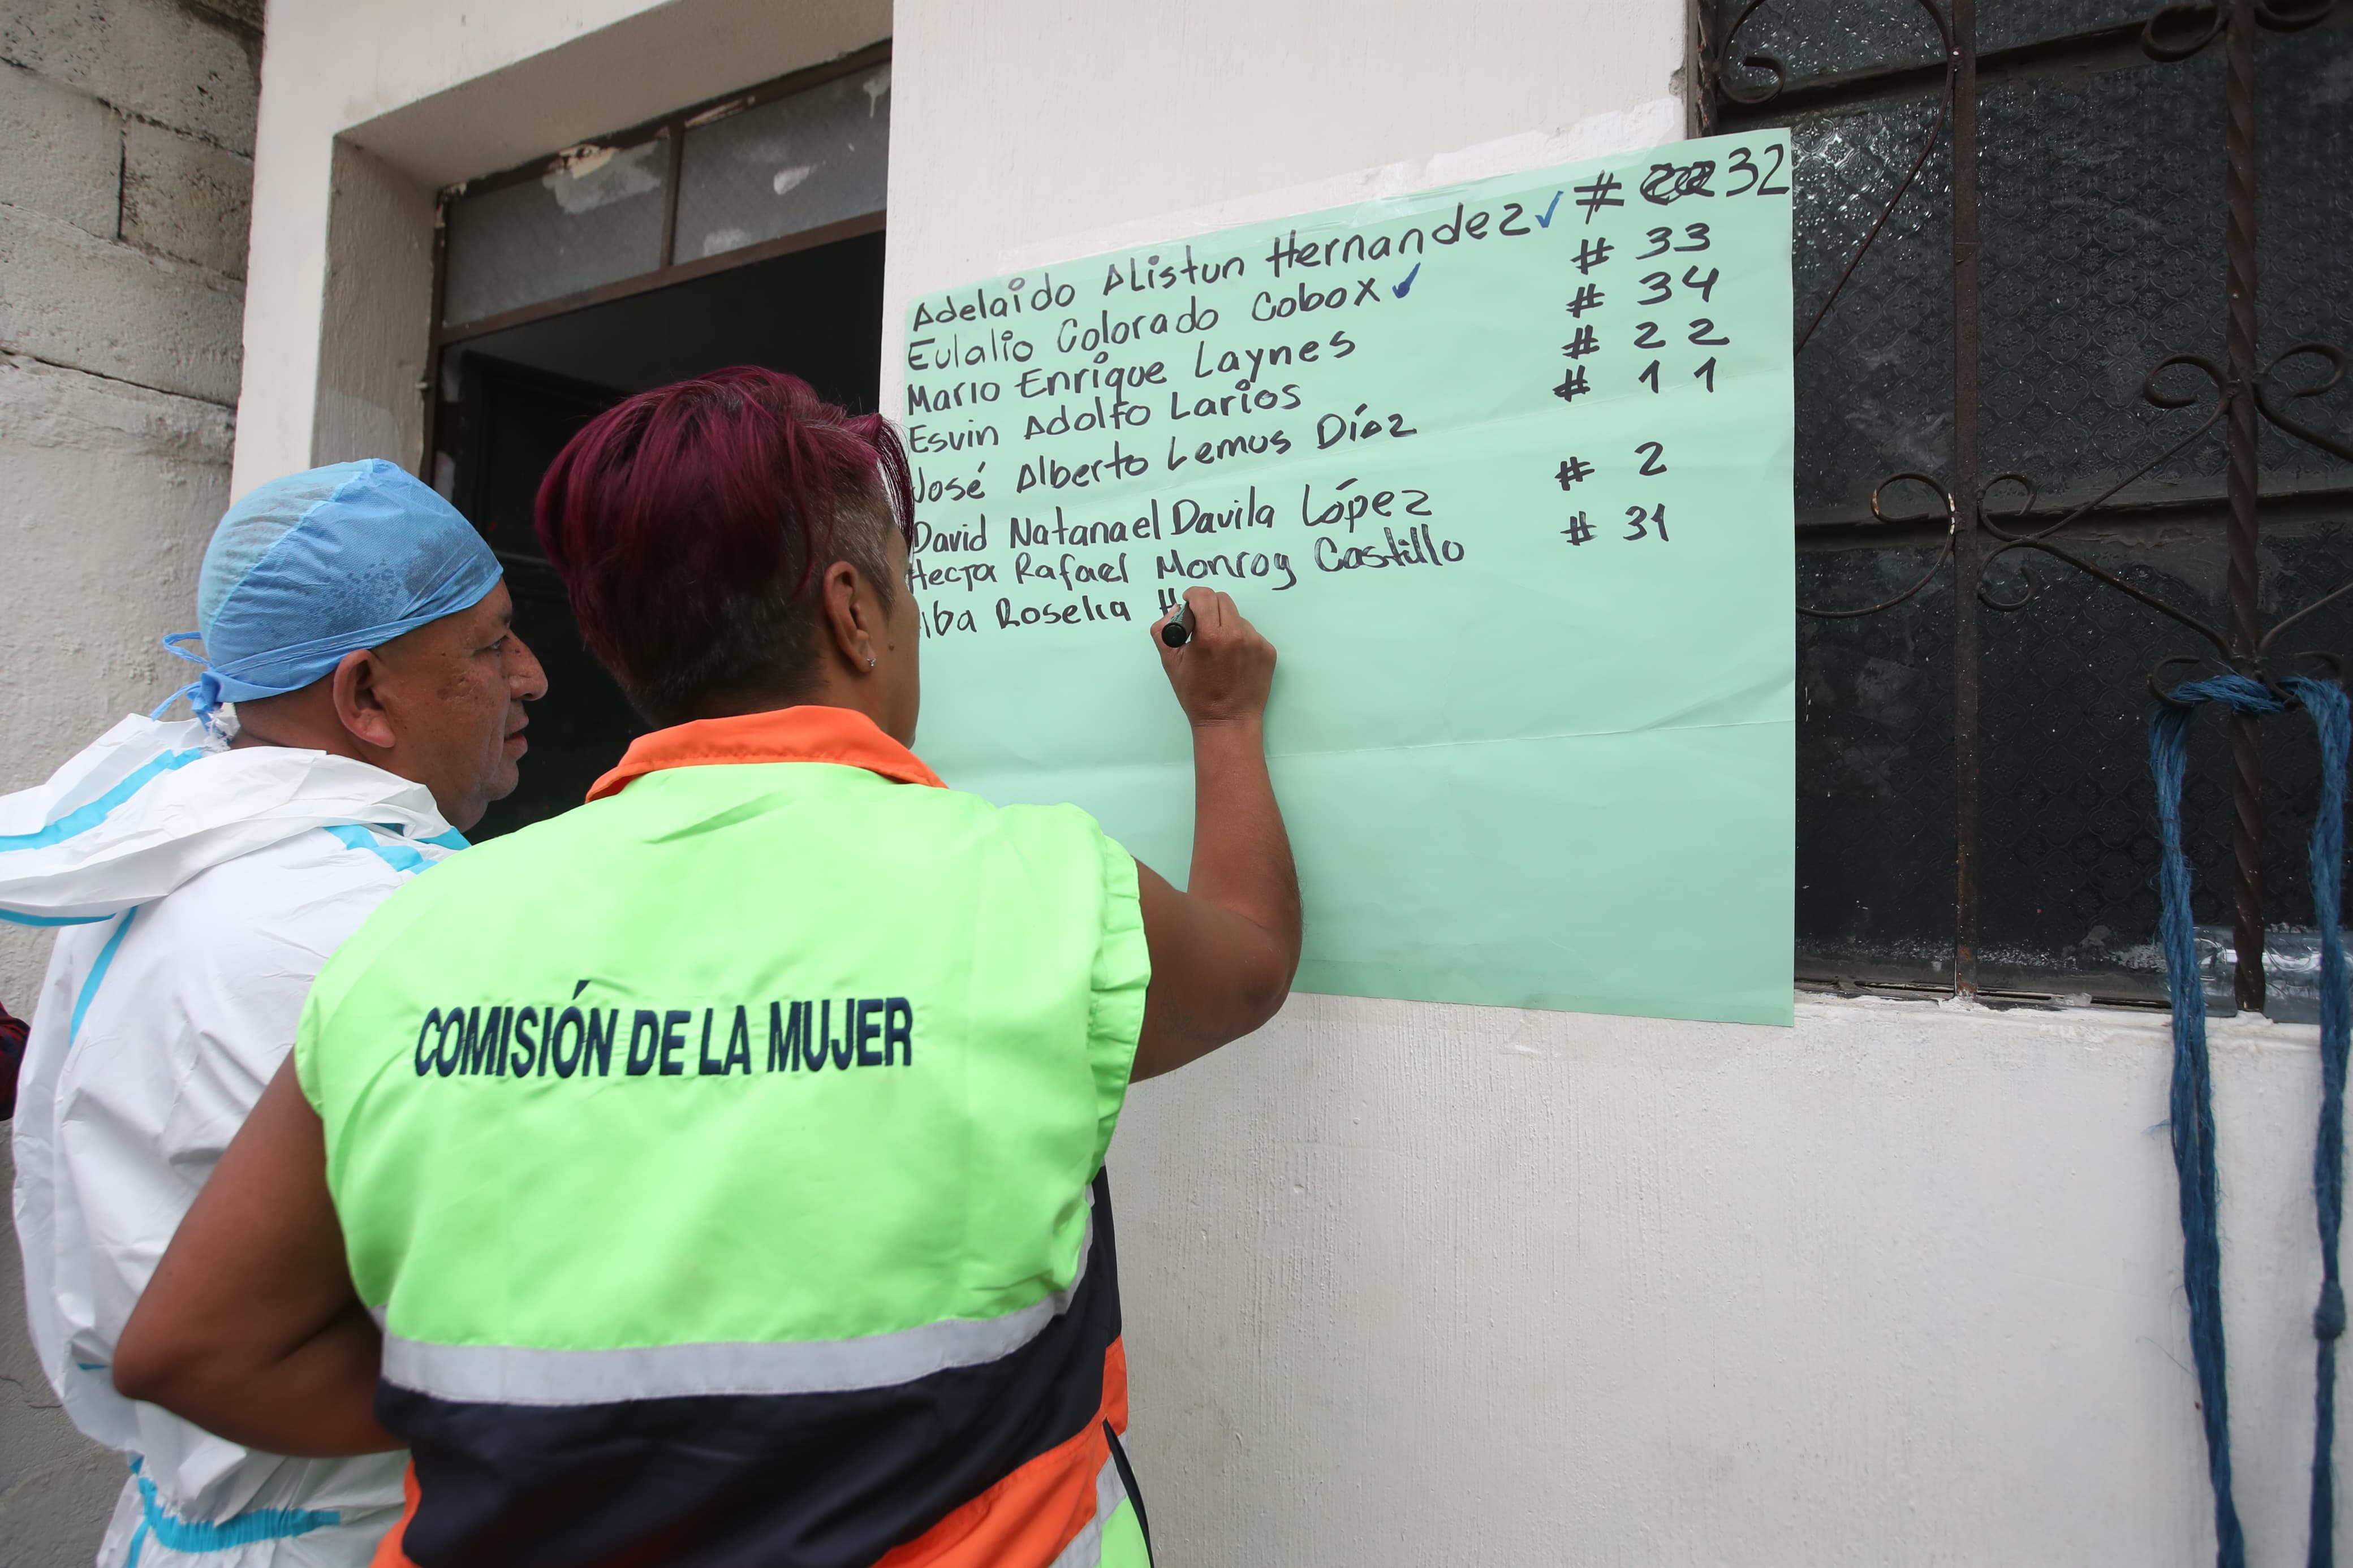 Adelaido Alistun Hernandez ✓ # 32
Eulalio Colorado Cobox ✓ # 33
Mario Enrique Laynes # 34
Esvin Adolfo Larios # 22
José Alberto Lemus Díaz # 11
David Natanael Davila López # 2
Hector Rafael Monroy Castillo # 31
Roselia H
COMISIÓN DE LA MUJER